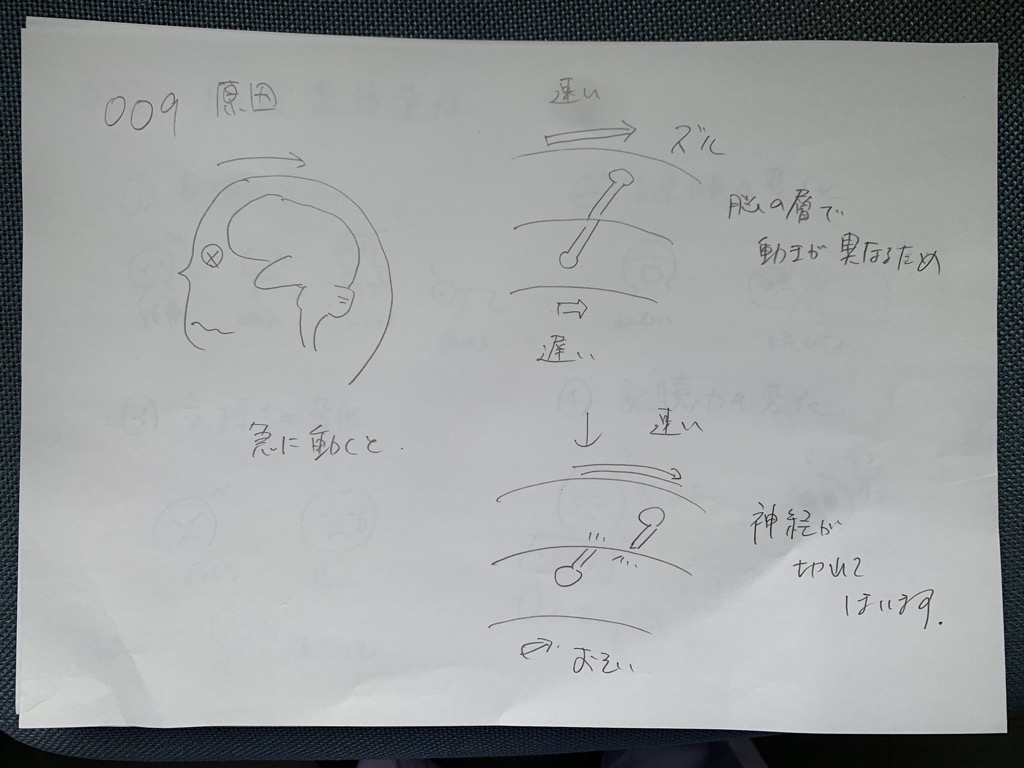 009 原因
急に動くと.
速い
ズル
脳の層で
動きが異なるため
遅い
速い
神経が
切れて
しまいます.
おそい